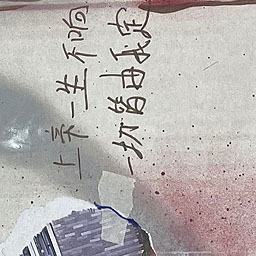 上帝一生不响
一切皆由我定